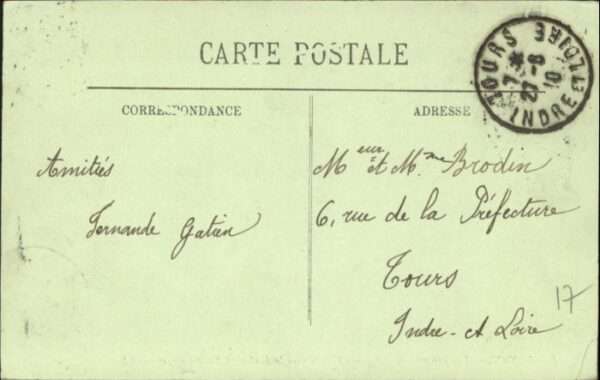 CARTE POSTALE
CORRESPONDANCE
ADRESSE
TOURS
7 *
27-8
10
INDRE ET LOIRE
Amitiés
Fernande Gatien
Meur et Mme Brodin
6, rue de la Préfecture
Tours
Indre-et Loire
17